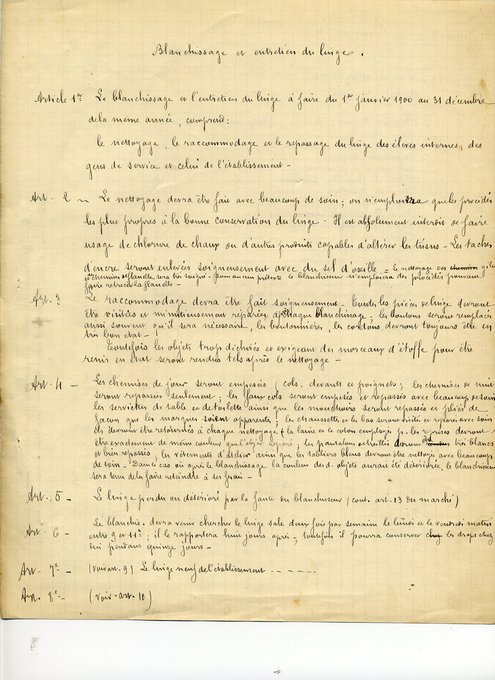 Blanchissage et entretien du linge.
Article 1er Le blanchissage et l'entretien du linge à faire du 1er Janvier 1900 au 31 décembre
de la même année comprend:
le nettoyage, le raccommodage et le repassage du linge des élèves internes, des
gens de service et celui de l'établissement -
Art - 2 - Le nettoyage devra être fait avec beaucoup de soin; on n'emploiera que les procédés
les plus propres à la bonne conservation du linge - Il est absolument interdit de faire
usage de chlorure de chaux ou d'autres produits capables d'altérer les tissus - Les taches
d'encre seront enlevées soigneusement avec du sel d'oseille - Le nettoyage des gilets
et chemises flanelle sous aucun prétexte le blanchisseur n'emploiera des procédés pouvant
faire rétrécir la flanelle -
Art. 3 Le raccommodage devra être fait soigneusement - Toutes les pièces de linge devront
être visitées et minutieusement réparées à chaque blanchissage; les boutons seront remplacés
aussi souvent qu'il sera nécessaire, les boutonnières, les cordons devront toujours être en
très bon état -
Toutefois les objets trop déchirés et exigeant des morceaux d'étoffe pour être
remis en état seront rendus tels après le nettoyage -
Art. 4 - Les chemises de jour seront empesées (cols, devants et poignets); les chemises de nuit
seront repassées seulement; les faux cols seront empesés et repassés avec beaucoup de soin
les serviettes de table et de toilette ainsi que les mouchoirs seront repassés et pliés de
façon que les marques soient apparentes; les chaussettes et les bas seront visités et reprisés avec soin
ils devront être retournés à chaque nettoyage & la laine et le coton employés p. les reprises devront
être exactement de même couleur que l'objet réparé; les pantalons et très blancs
et bien repassés; les vêtements d'été ainsi que les tabliers bleus devront être nettoyés avec beaucoup
de soin - Dans le cas où après le blanchissage la couleur des d. objets aurait été détériorée, le blanchisseur
sera tenu de la faire reteindre à ses frais -
Art - 5 - Le linge perdu ou détérioré par la faute du blanchisseur (cont. art. 13 du marché)
Art - 6 - Le blanchis. devra venir chercher le linge sale deux fois par semaine le lundi et le vendredi matin
entre 9 et 11h; il le rapportera huit jours après; toutefois il pourra conserver les draps chez
lui pendant quinze jours -
Art - 7e - (Voir art. 9) Le linge neuf de l'établissement - - - - -
Art. 8e - (Voir art. 10)